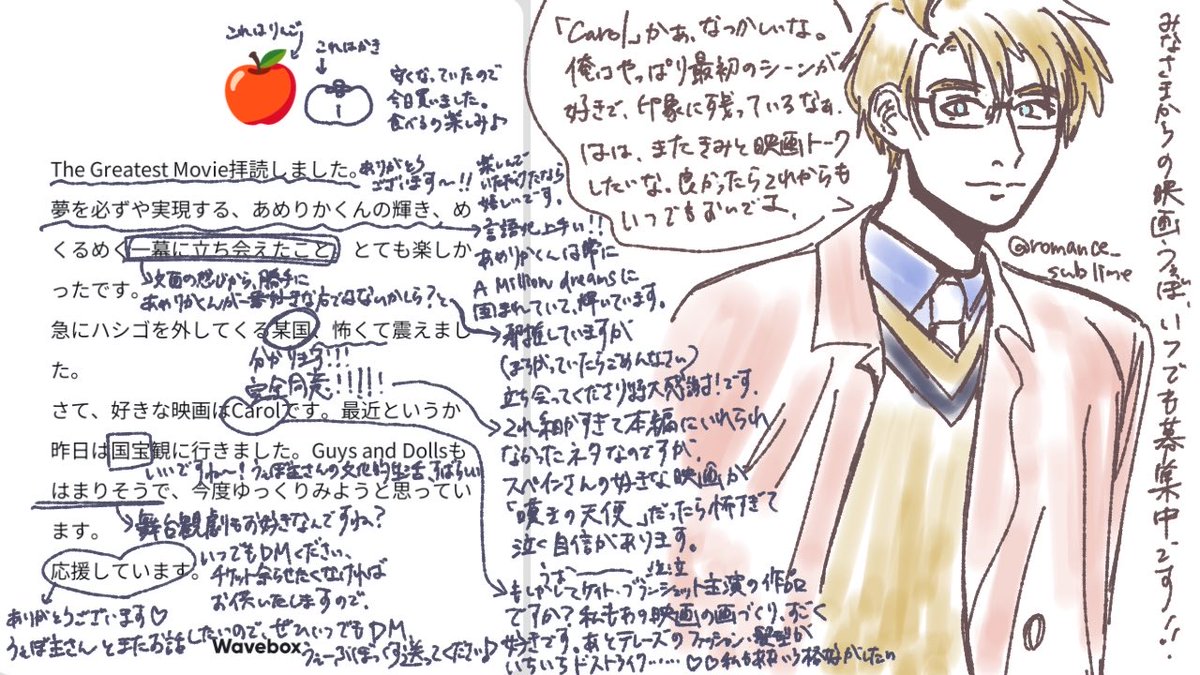 これはりんご
これはかき
安くなっていたので
今日買いました。
食べるの楽しみ♪
The Greatest Movie拝読しました。
夢を必ずや実現する、あめりかくんの輝き、め
くるめく一幕に立ち会えたこと、とても楽しか
ったです。
急にハシゴを外してくる某国、怖くて震えまし
た。
さて、好きな映画はCarolです。最近というか
昨日は国宝観に行きました。Guys and Dollsも
はまりそうで、今度ゆっくりみようと思ってい
ます。
応援しています。
Wavebox
ありがとう
ございます〜!!
楽しんで
いただけたなら
嬉しいです。
言語化上手い!!
あめりかくんは常に
A Million dreamsに
囲まれていて、輝いています。
文面の感じから、勝手に
あめりかくんが一番好きな方ではないかしら?と
解推していますが
(まちがっていたらごめんなさい)
立ち会ってくださり特大感謝!です。
分かります!!!
完全同意!!!!!
これ細かすぎて本編にいれられ
なかったネタなのですが、
スペインさんの好きな映画が
「嘆きの天使」だったら怖すぎて
泣く自信があります。
いいですね〜!うぇぼ主さんの文化的生活、すばらしい
舞台観劇もお好きなんですね?
いつでもDMください、
チケット余らせたくなければ
お供いたしますので。
もしかしてケイト・ブランシェット主演の作品
ですか?私もあの映画の画づくり、すごく
好きです。あとテレーズのファッション、髪型が
いちいちドストライク……♡♡
ありがとうございます♡
うぇぼ主さんとまたお話したいので、ぜひいつでもDM、
うぇーぶぼっくす送ってください♪
「Carol」かぁ、なつかしいな。
俺はやっぱり最初のシーンが
好きで、印象に残っているなぁ。
はは、またきみと映画トーク
したいな。良かったらこれからも
いつでもおいでよ。
@romance_
sublime
みなさまからの映画うぇぼ、いつでも募集中です!!